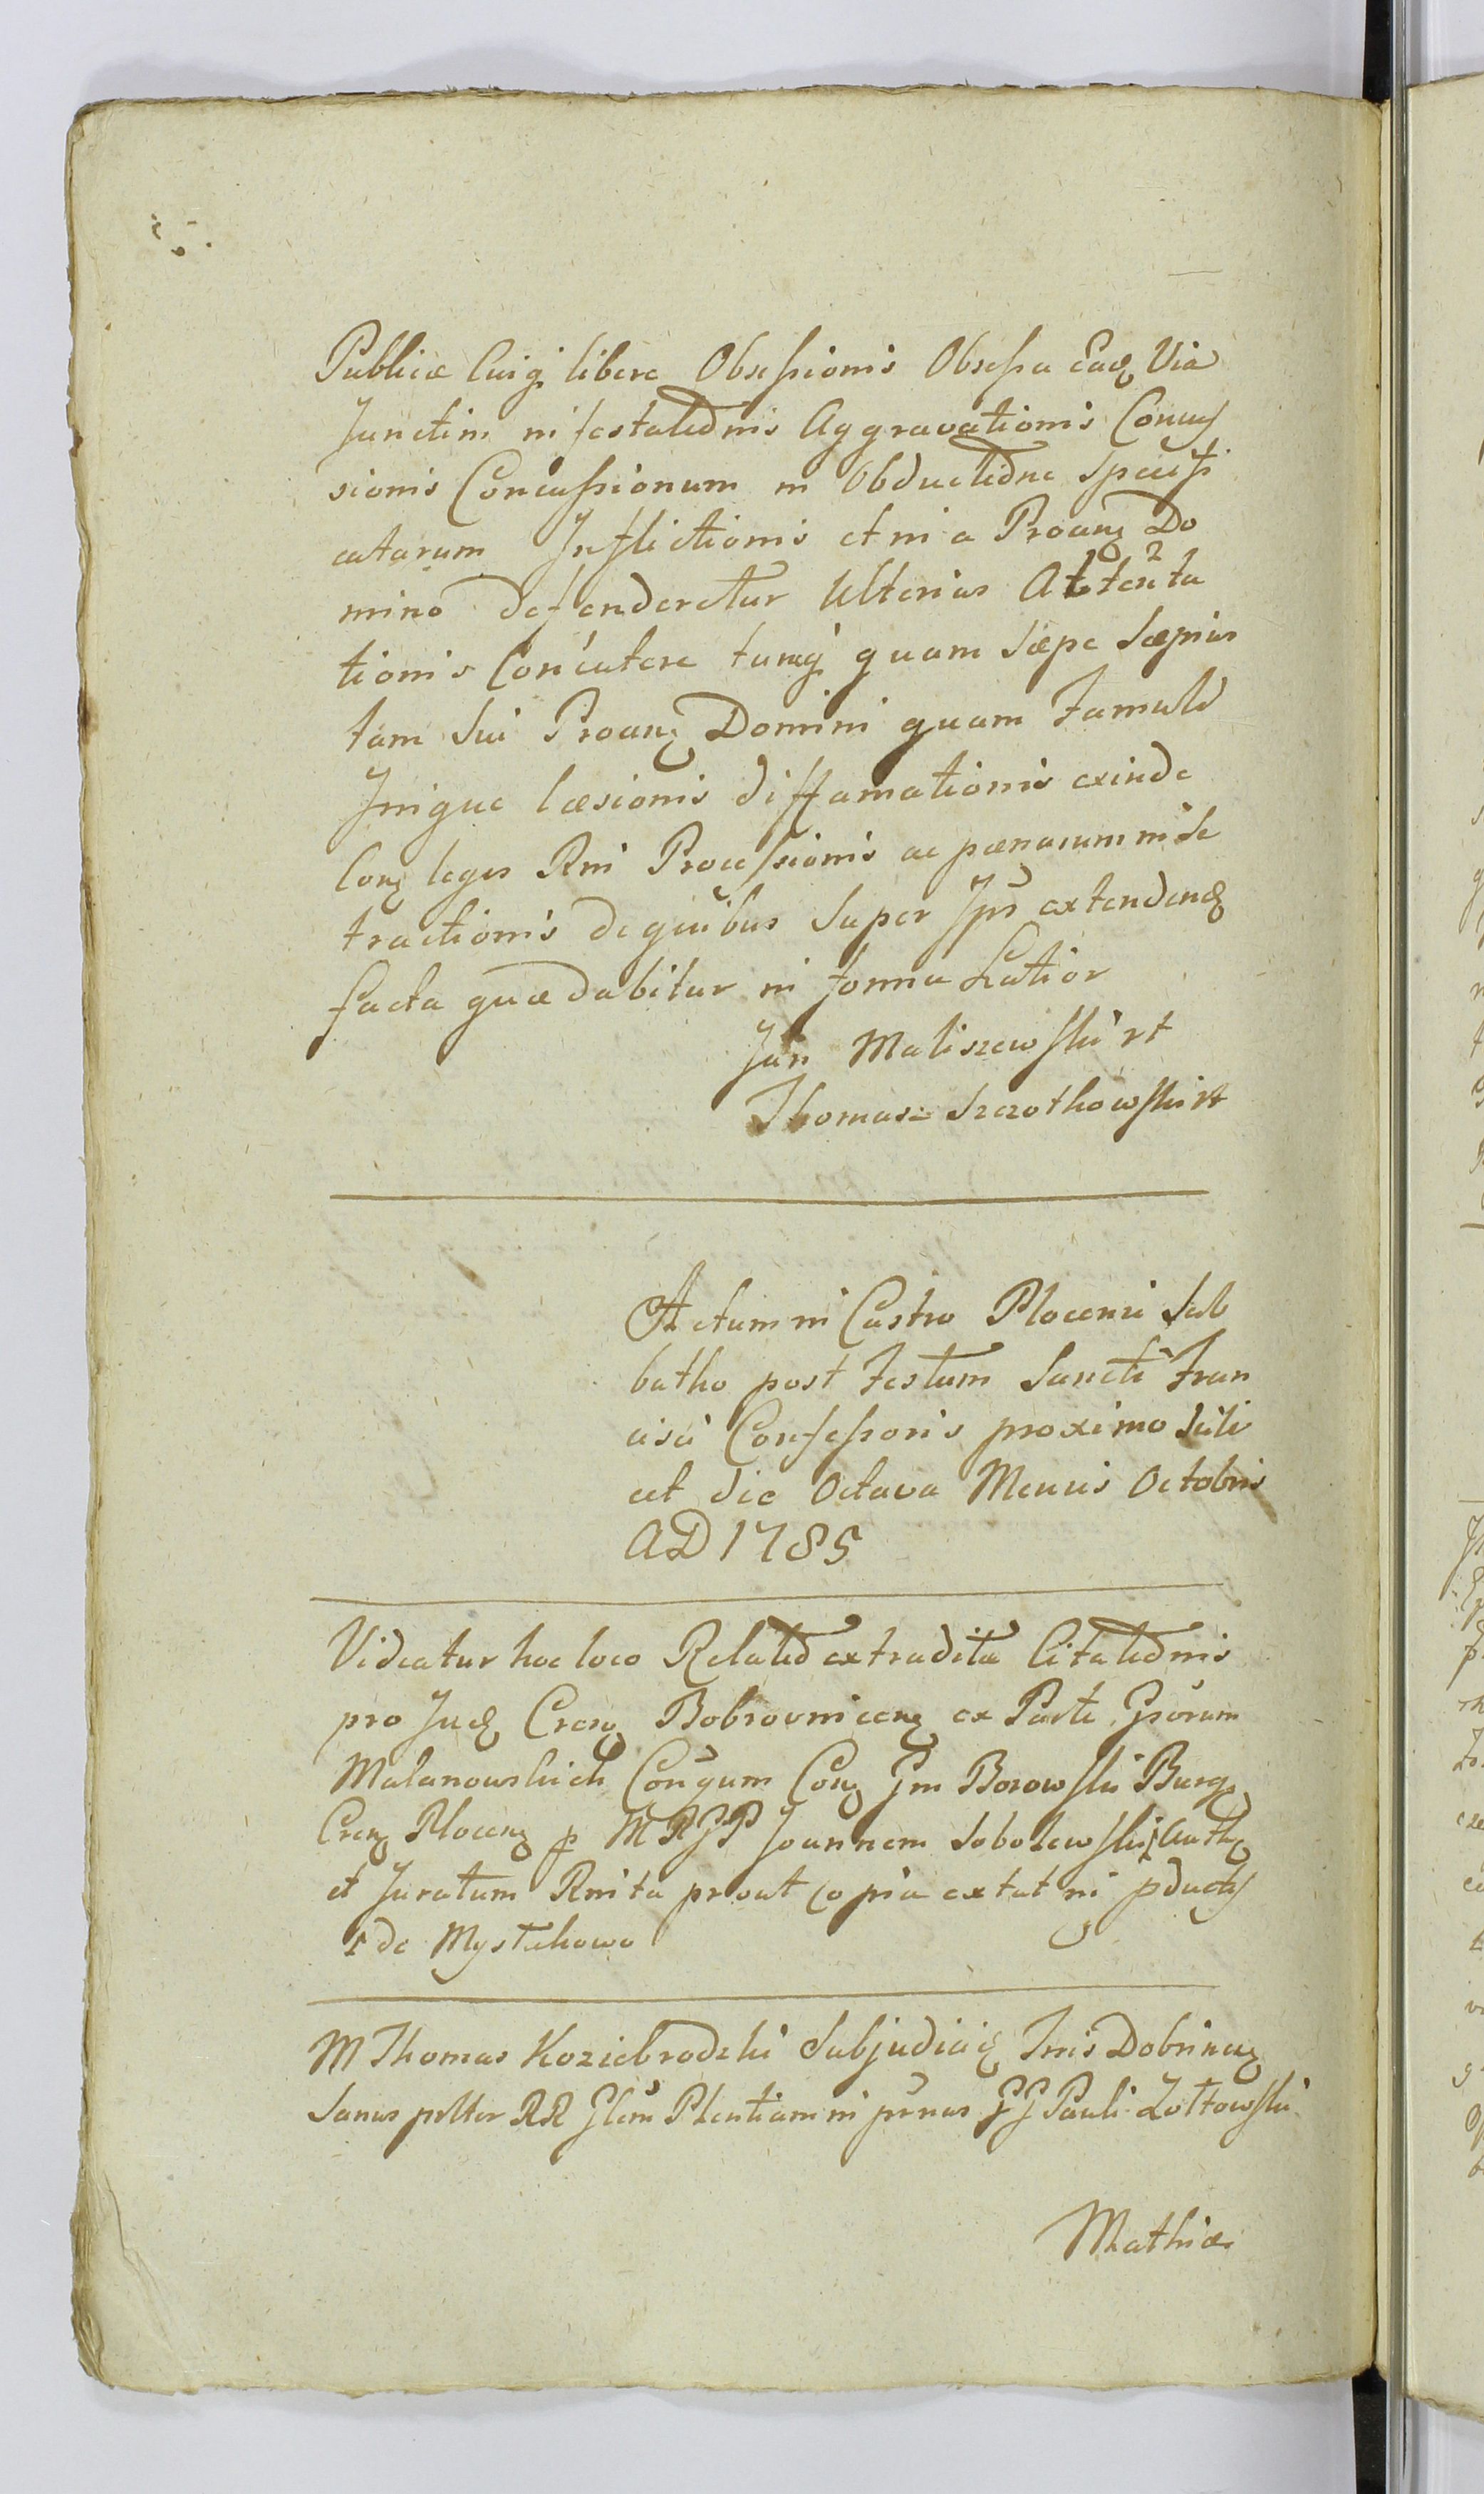 Publicæ Cuiq libere Obsessionis Obsessa Eadq Via
Junctim infestationis Aggravationis Concus
sionis Concussionum in Obductione Specifi
catarum Inflictionis et ni a Proang Do
mino defenderetur Ulterius Attenta
tionis Concutere tumq quam Sæpe Sæpius
tam Sui Proang Domini quam Famuld
Inique læsionis diffamationis exinde
Cong leges Rni Processionis ac pœnarum in se
tractionis de quibus Super Ipn extendend
facta quæ dabitur in forma Latior
Jan Maliszewski rt
Thomasz Szczotkowski rt
Actum in Castro Plocensi Sab
batho post Festum Sancti Fran
cisci Confessoris proximo Scili
cet die Octava Mensis Octobris
AD 1785
Videatur hoc loco Relatio extraditæ Citationis
pro Jud Crens Bobrovnicens ex Parte Gsorum
Malanowskich Congum Cong Gm Borowski Burg
Crens Plocens p MRGP Joannem Sobolewski Auth
et Juratum Rnita prout copia extat in pducts
r de Mystkowo
M Thomas Koziebrodzki Subjudicus Trris Dobrinens
Sanus pltter RR Glem Plentiam in prnas GG Pauli Zołtowski
Mathiæ